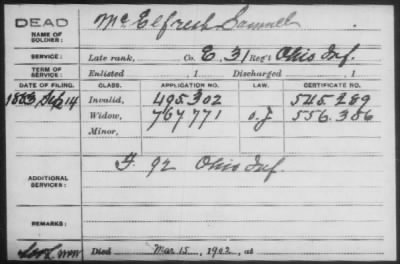 DEAD
NAME OF SOLDIER: McElfresh Samuel
SERVICE: Late rank, Co. E. 31 Reg't Ohio Inf.
TERM OF SERVICE Enlisted , 1 Discharged , 1
DATE OF FILING. CLASS. APPLICATION NO. LAW. CERTIFICATE NO.
1883 Sep 14 Invalid, 495.302 545.289
Widow, 767771 o.J 556.386
Minor,
F. 92 Ohio Inf.
ADDITIONAL SERVICES:
REMARKS:
Died Mar 15, 1902, at